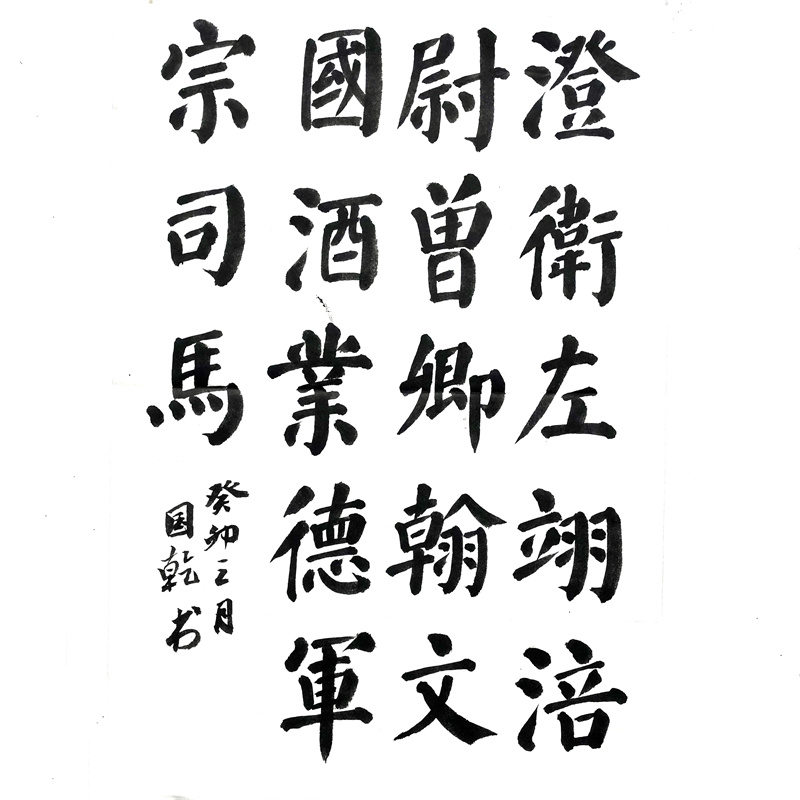 澄衛左翊涪
尉曾卿翰文
國酒業德軍
宗司馬
癸卯三月
国乾书